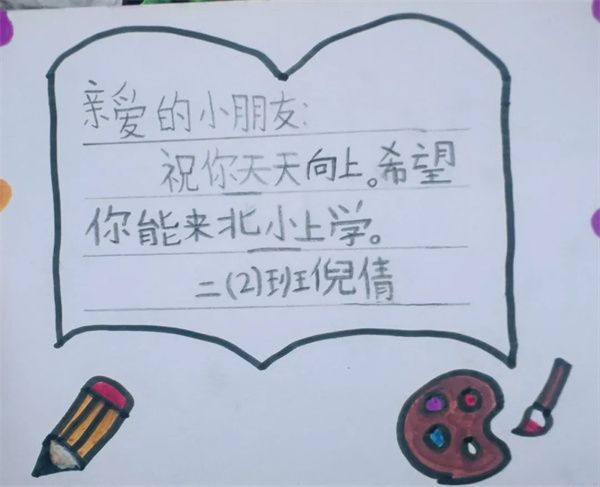 亲爱的小朋友:
祝你天天向上。希望
你能来北小上学。
二(2)班倪倩